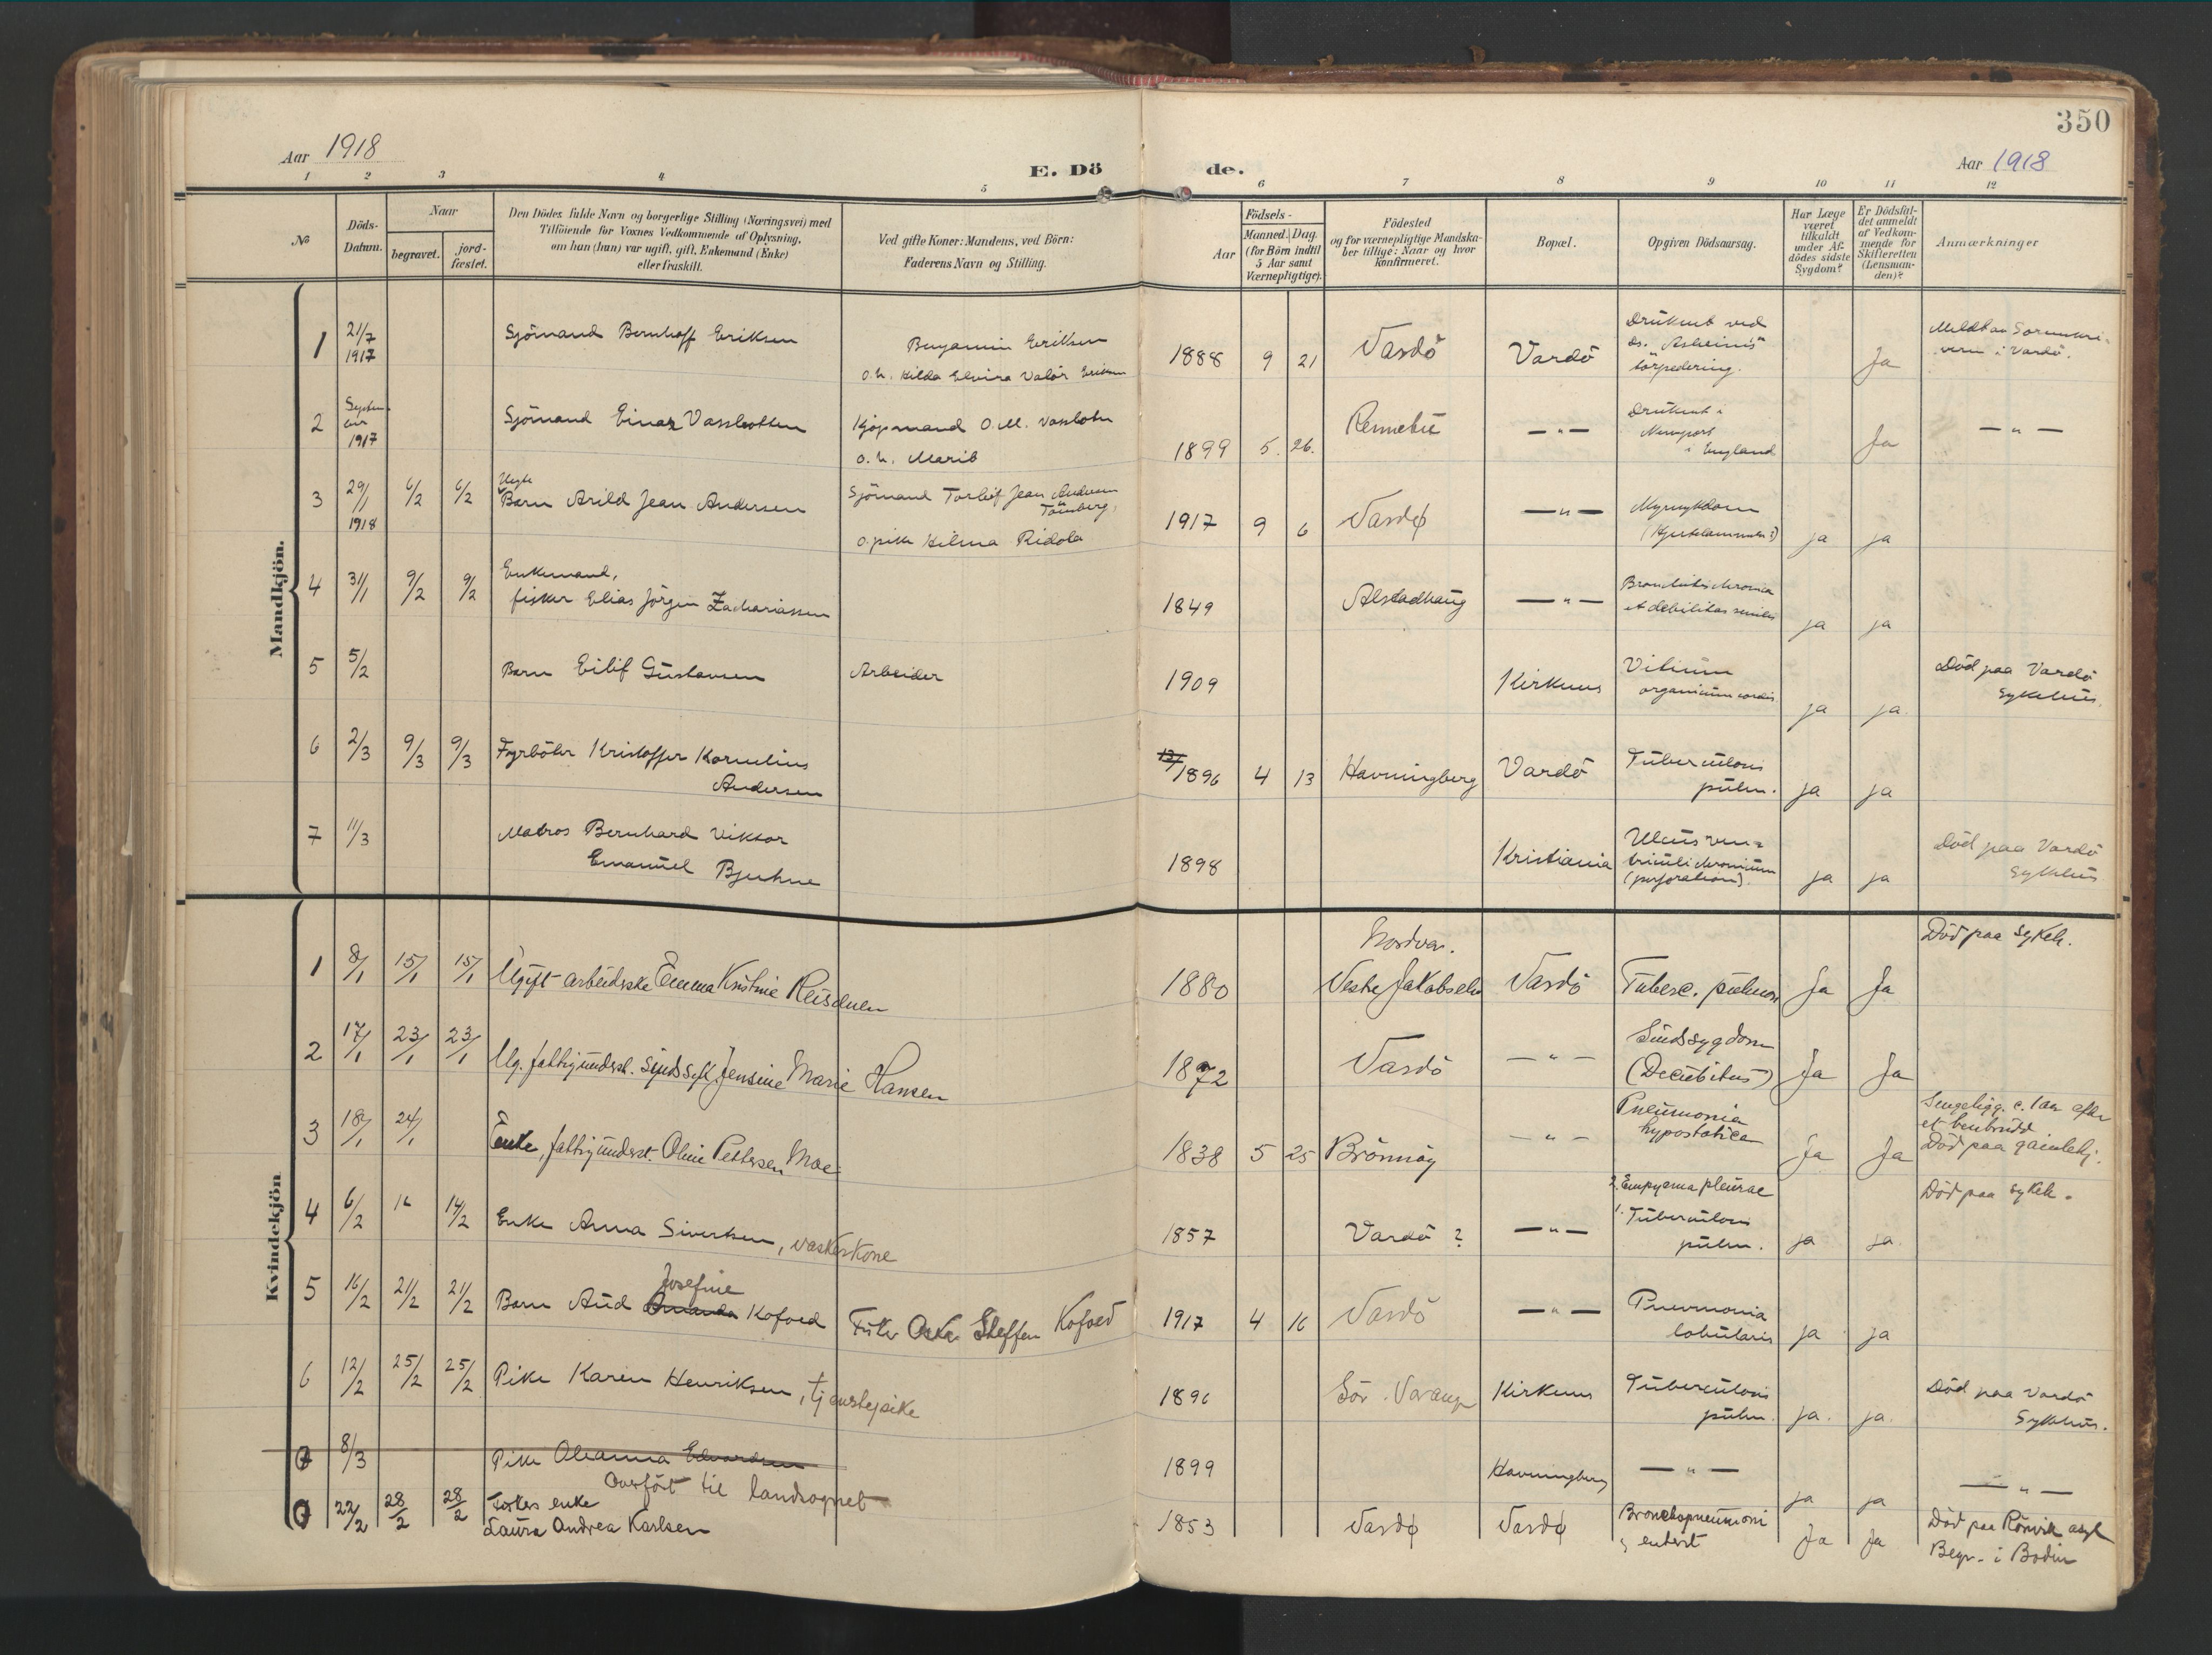 350
Aar 1918
E. Dö
de.
Aar 1918
1 2 3 4 5 6 7 8 9 10 11 12
No
Döds-
Datum.
Naar
begravet.
jord-
fæstet.
Den Dödes fulde Navn og borgerlige Stilling (Næringsvei) med
Tilföiende for Voxnes Vedkommende af Oplysning,
om han (hun) var ugift, gift, Enkemand (Enke)
eller fraskilt.
Ved gifte Koner: Mandens, ved Börn:
Faderens Navn og Stilling.
Aar
Födsels-
Maaned. Dag.
(for Börn indtil
5 Aar samt
Værnepligtige).
Födested
og for værnepligtige Mandska-
ber tillige: Naar og hvor
konfirmeret.
Bopæl.
Opgiven Dödsaarsag.
Har Læge
været
tilkaldt
under Af-
dödes sidste
Sygdom?
Er Dödsfal-
det anmeldt
af Vedkom-
mende for
Skifteretten
(Lensman-
den)?
Anmærkninger
Mandkjön.
1 21/7 1917 Sjömand Bernhoff Eriksen Benjamin Eriksen
o.h. Hilda Elvira Valör Eriksen
1888 9 21 Vardö Vardö Druknet ved
ds. torpedering. Ja
i Vardö.
2 1917 Sjömand Einar Kjöpmand O. M.
o.h. Marit
1899 5. 26. Rennebu — " — Druknet i
Newport
i England Ja — " —
3 29/1 1918 6/2 6/2 Uegte
Barn Arild Jean Andersen Sjömand Torleif Jean Andersen
Tönsberg,
o. pike Hilma Ridola
1917 9 6 Vardø — " —
ja ja
4 31/1 9/2 9/2 Enkemand,
fisker Elias Jörgen Zachariassen
1849 Alstadhaug — " —
et debilitas senilis ja ja
5 5/2 Barn Eilif Gustavsen Arbeider
1909 Kirkenes Vitium
organicum cordis ja ja. Död paa Vardö
Sykehus.
6 2/3 9/3 9/3 Fyrböter Kristoffer Kornelius
Andersen
1896 4 13 Havningberg Vardö Tuberculosis
pulm. ja ja
7 11/3 Matros Bernhard Viktor
Emanuel Bjerkne
1898 Kristiania Ulcus ven-
triculi chronicum
(perforation). ja ja Död paa Vardö
Sykehus
Kvindekjön
1 8/1 15/1 15/1 Ugift arbeiderske Emma Kristine
1880 Nordvar.
Vestre Jakobselv Vardö Tuberc. pulmon Ja Ja Död paa sykeh.
2 17/1 23/1 23/1 Ug. fattigunderst. sindssyk Jensine Marie Hansen
1872 Vardö — " — Sindssygdom
(Decubitus) Ja Ja
3 18/1 24/1 Enke, fattigunderst. Oline Pettersen Moe
1838 5 25 Brönnöy — " — Pneumonia
hypostatica Ja Ja Sengeligg. c. 1 aar efter
et benbrudd
Död paa gamlehj.
4 6/2 14/2 Enke Anna Sivertsen, vaskerkone
1857 Vardö ? — " — 2. Empyema pleurae
1. Tuberculosis
pulm. ja ja. Död paa sykeh.
5 16/2 21/2 21/2 Josefine
Barn Aud Amanda Kofoed Fisker Oskar Steffen Kofoed
1917 4 16 Vardö — " — Pneumonia
lobularis ja ja
6 12/2 25/2 25/2 Pike Karen Henriksen, tjenstepike
1896 Sör. Varanger Kirkenes Tuberculosis
pulm. ja. ja. Död paa Vardö
Sykehus.
7 8/3 Pike Oleanna Edvardsen
Overfört til landsognet
1899 Havningberg — " — ja ja — " —
22/2 28/2 28/2 Fiskers enke
Laura Andrea Karlsen
1853 Vardø Vardø Bronchopneumoni
Ja Ja Död paa Rönvik asyl
Begr. i Bodin